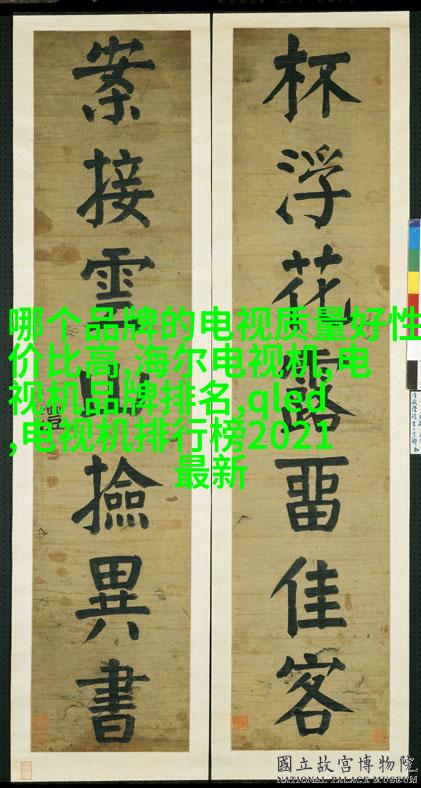 杯浮花露留佳客
案接雲山撿異書
哪个品牌的电视质量好性
价比高,海尔电视机,电
视机品牌排名,qled
,电视机排行榜2021
最新
國立故宮博物院
NATIONAL PALACE MUSEUM